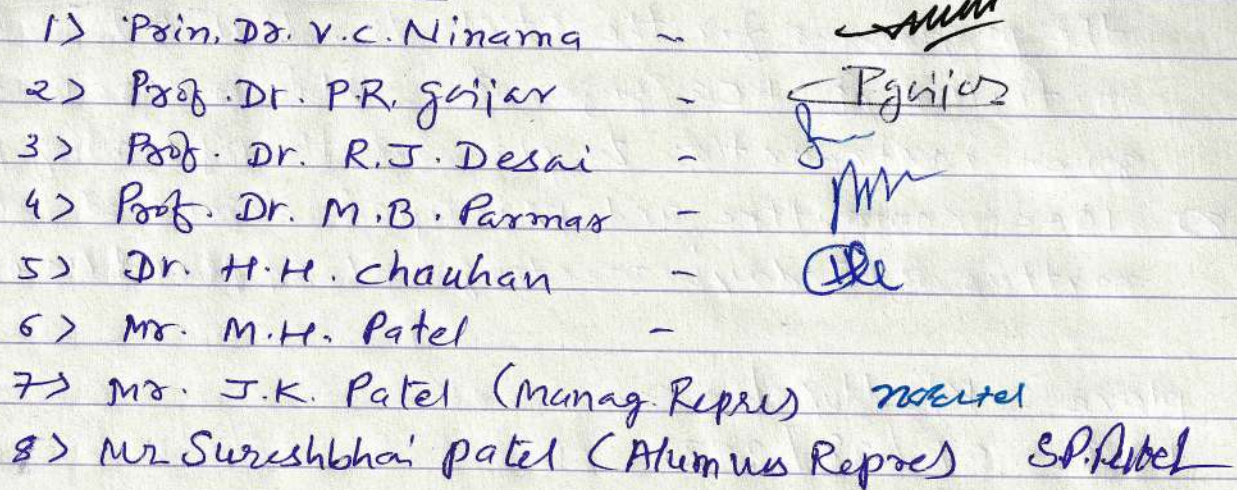 1) Prin. Dr. V.C. Ninama -
2) Prof. Dr. P.R. Gurjar - Pgurjar
3) Prof. Dr. R.J. Desai -
4) Prof. Dr. M.B. Parmar -
5) Dr. H.H. Chauhan -
6) Mr. M.H. Patel -
7) Mr. J.K. Patel (Manag. Repres)
8) Mr Sureshbhai patel (Alumnus Repres) S.P.Patel